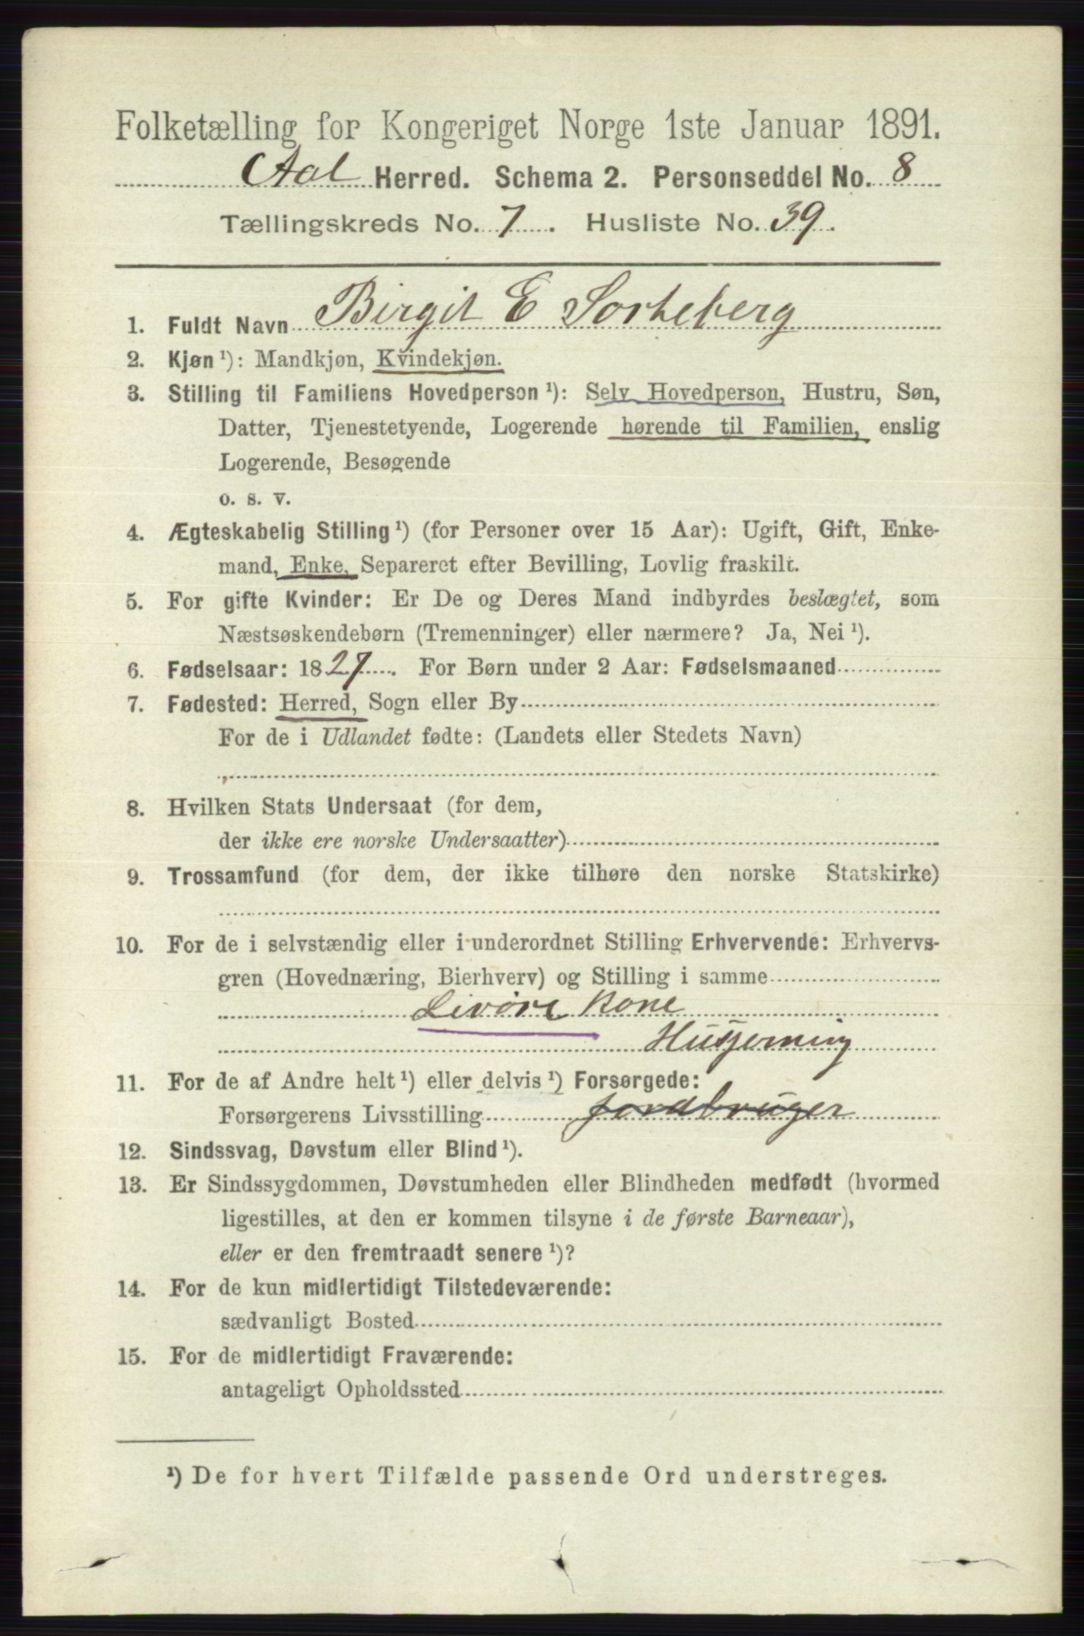 Folketælling for Kongeriget Norge 1ste Januar 1891.
Aal Herred. Schema 2. Personseddel No. 8
Tællingskreds No. 7. Husliste No. 39.
1. Fuldt Navn Birgit E Sorteberg
2. Kjøn ¹): Mandkjøn, Kvindekjøn.
3. Stilling til Familiens Hovedperson ¹): Selv Hovedperson, Hustru, Søn,
Datter, Tjenestetyende, Logerende hørende til Familien, enslig
Logerende, Besøgende
o. s. v.
4. Ægteskabelig Stilling ¹) (for Personer over 15 Aar): Ugift, Gift, Enke-
mand, Enke, Separeret efter Bevilling, Lovlig fraskilt.
5. For gifte Kvinder: Er De og Deres Mand indbyrdes beslægtet, som
Næstsøskendebørn (Tremenninger) eller nærmere? Ja, Nei ¹).
6. Fødselsaar: 1827. For Børn under 2 Aar: Fødselsmaaned
7. Fødested: Herred, Sogn eller By
For de i Udlandet fødte: (Landets eller Stedets Navn)
8. Hvilken Stats Undersaat (for dem,
der ikke ere norske Undersaatter)
9. Trossamfund (for dem, der ikke tilhøre den norske Statskirke)
10. For de i selvstændig eller i underordnet Stilling Erhvervende: Erhvervs-
gren (Hovednæring, Bierhverv) og Stilling i samme
Livøre Kone
Husgjerning
11. For de af Andre helt ¹) eller delvis ¹) Forsørgede:
Forsørgerens Livsstilling Jordbruger
12. Sindssvag, Døvstum eller Blind ¹).
13. Er Sindssygdommen, Døvstumheden eller Blindheden medfødt (hvormed
ligestilles, at den er kommen tilsyne i de første Barneaar),
eller er den fremtraadt senere ¹)?
14. For de kun midlertidigt Tilstedeværende:
sædvanligt Bosted
15. For de midlertidigt Fraværende:
antageligt Opholdssted
¹) De for hvert Tilfælde passende Ord understreges.